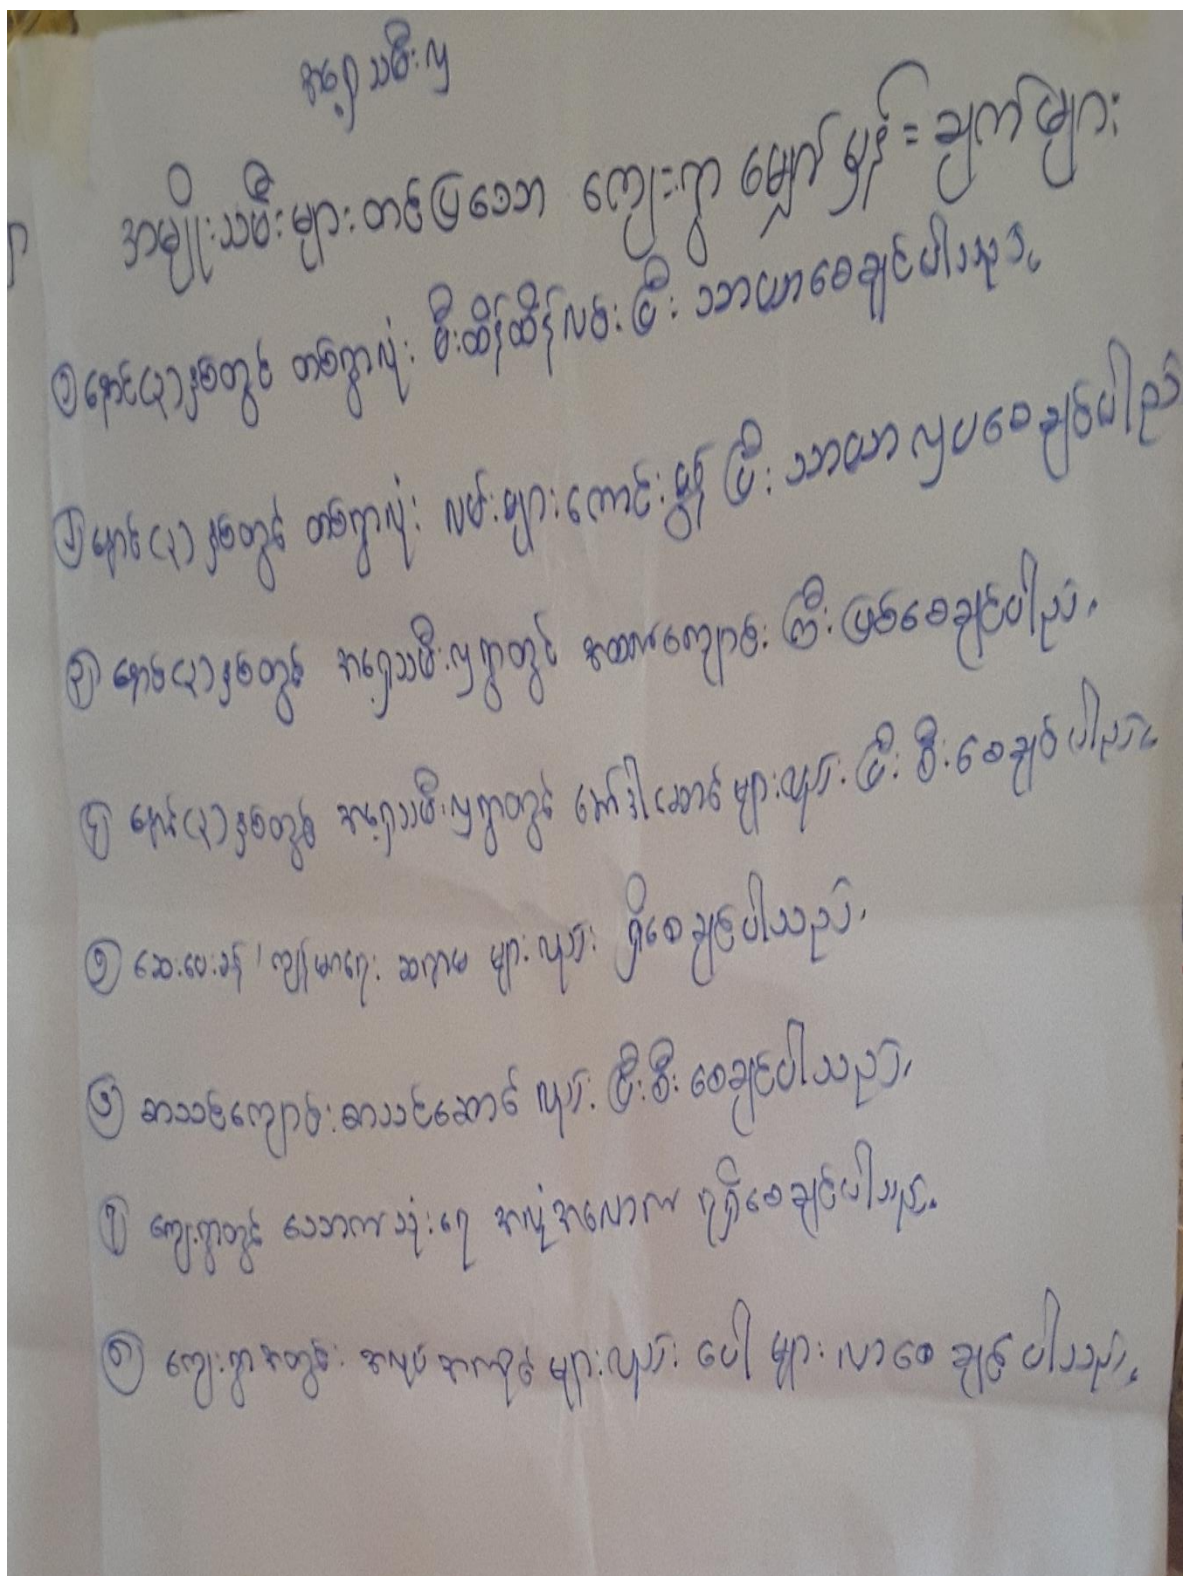 အရှေ့သမီးလှ
အမျိုးသမီးများတင်ပြသော ကျေးရွာ မျှော်မှန်းချက်များ
① နောင်(၃)နှစ်တွင် တစ်ရွာလုံး မီးထိန်ထိန်လင်းပြီး သာယာစေချင်ပါသည်။
② နောင်(၃)နှစ်တွင် တစ်ရွာလုံး လမ်းများကောင်းမွန်ပြီး သာယာလှပစေချင်ပါသည်
③ နောင်(၃)နှစ်တွင် အရှေ့သမီးလှရွာတွင် အထကကျောင်းကြီးဖြစ်စေချင်ပါသည်။
④ နောင်(၃)နှစ်တွင် အရှေ့သမီးလှရွာတွင် ဘော်ဒါဆောင်များလည်းပြီးစီးစေချင်ပါသည်။
⑤ ဆေးပေးခန်း၊ ကျန်းမာရေး ဆရာမ များလည်း ရှိစေချင်ပါသည်။
⑥ စာသင်ကျောင်း စာသင်ဆောင် လည်း ပြီးစီးစေချင်ပါသည်။
⑦ ကျေးရွာတွင် သောက်သုံးရေ အလုံအလောက် ရရှိစေချင်ပါသည်။
⑧ ကျေးရွာအတွင်း အလုပ်အကိုင်များလည်း ပေါများလာစေချင်ပါသည်။